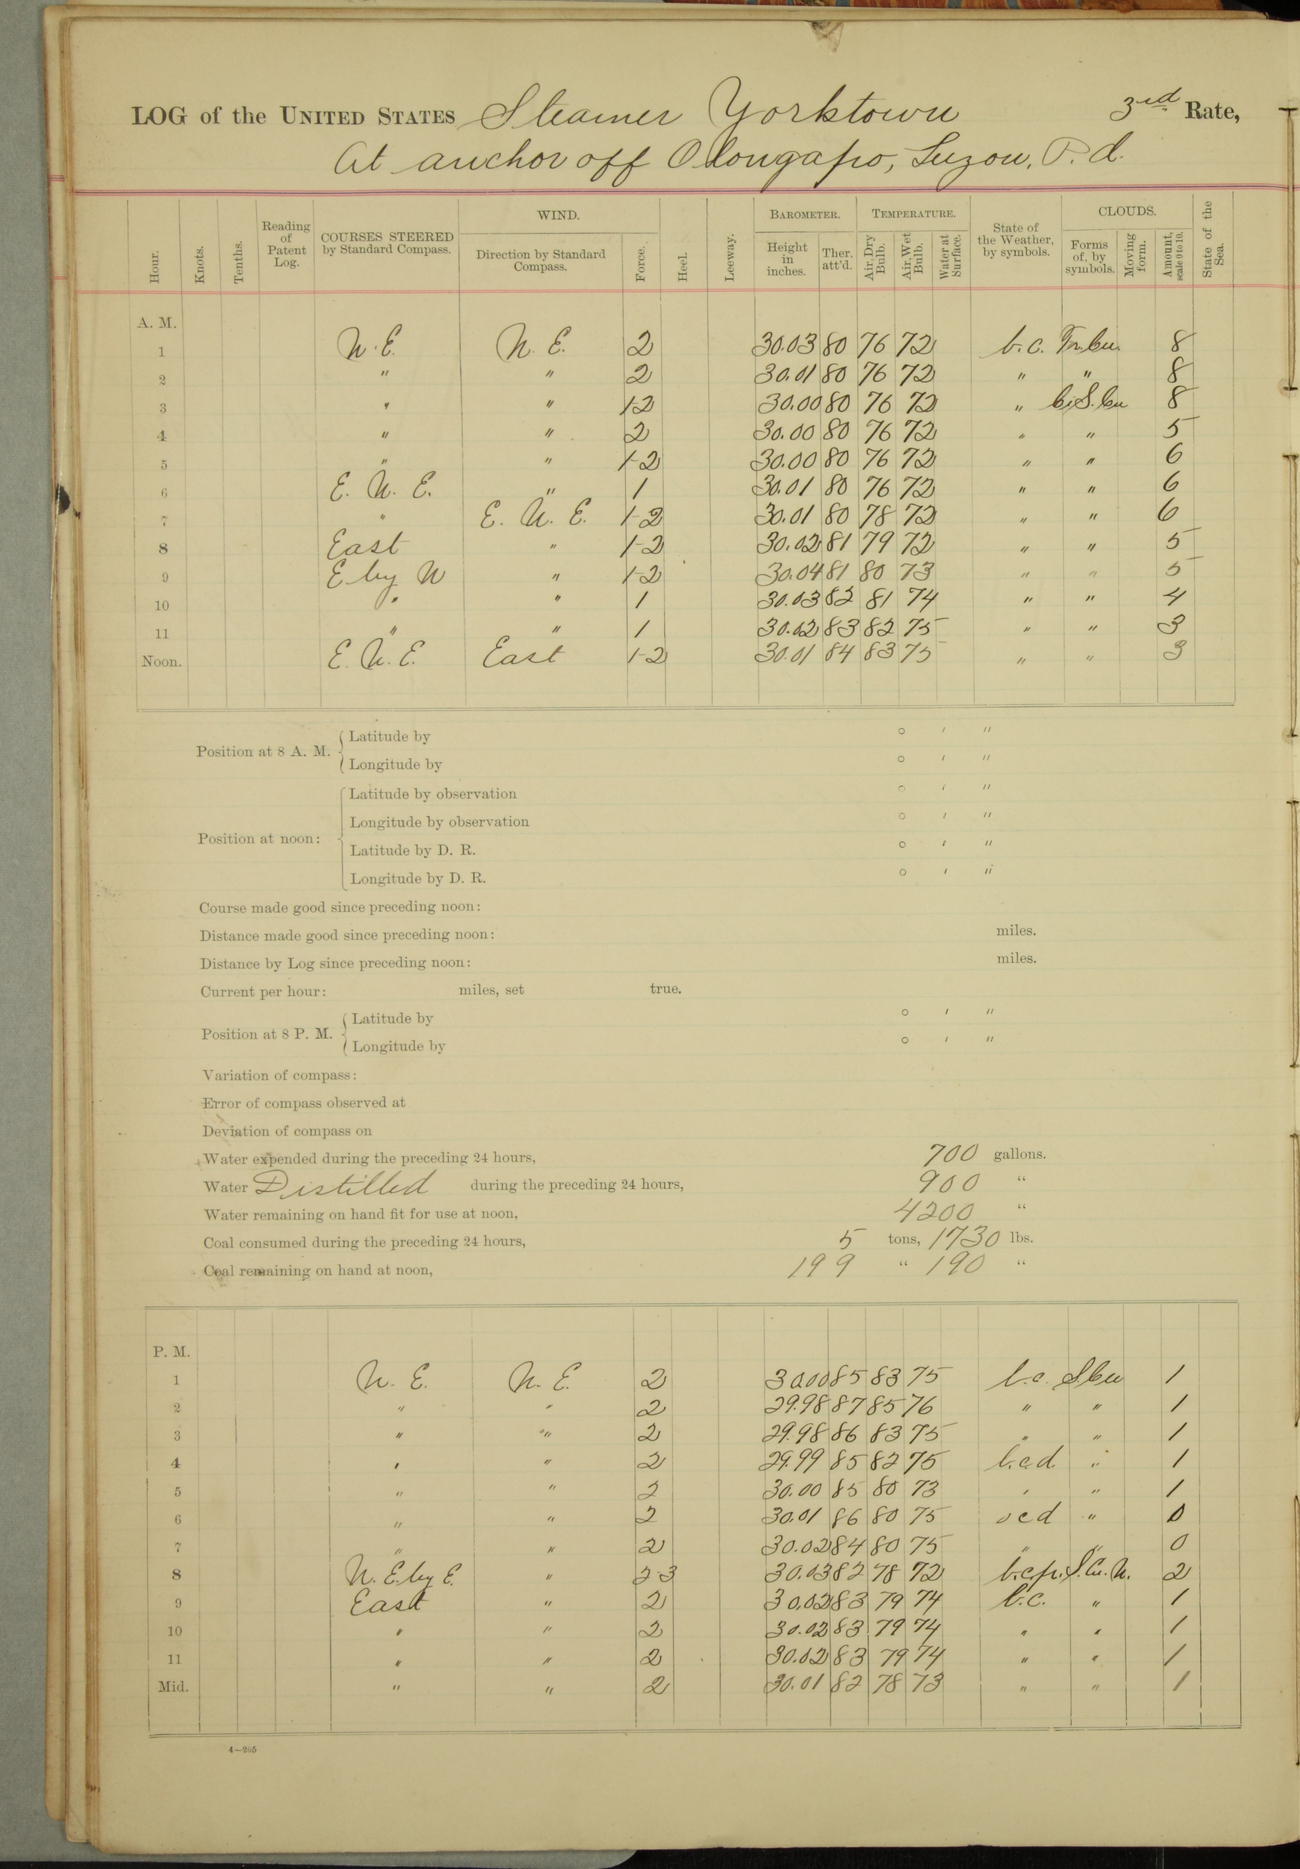 LOG of the UNITED STATES Steamer Yorktown 3rd Rate,
At anchor off Olongapo, Luzon, P. I.
Hour. Knots. Tenths. Reading of Patent Log. COURSES STEERED by Standard Compass. WIND. Direction by Standard Compass. Force. Heel. Leeway. BAROMETER. Height in inches. Ther. att'd. TEMPERATURE. Air, Dry Bulb. Air, Wet Bulb. Water at Surface. State of the Weather, by symbols. CLOUDS. Forms of, by symbols. Moving form. Amount, scale 0 to 10. State of the Sea.
A. M.
1 N.E. N. E. 2 30.03 80 76 72 b.c. Cu. 8
2 " " 2 30.01 80 76 72 " " 8
3 " " 1-2 30.00 80 76 72 " Ci.S.Cu 8
4 " " 2 30.00 80 76 72 " " 5
5 " " 1-2 30.00 80 76 72 " " 6
6 E. N. E. " 1 30.01 80 76 72 " " 6
7 " E. N. E. 1-2 30.01 80 78 72 " " 6
8 East " 1-2 30.02 81 79 72 " " 5
9 E by N " 1-2 30.04 81 80 73 " " 5
10 " " 1 30.03 82 81 74 " " 4
11 " " 1 30.02 83 82 75 " " 3
Noon. E. N. E. East 1-2 30.01 84 83 75 " " 3
Position at 8 A. M. { Latitude by ° ′ ″
Longitude by ° ′ ″
Position at noon: { Latitude by observation ° ′ ″
Longitude by observation ° ′ ″
Latitude by D. R. ° ′ ″
Longitude by D. R. ° ′ ″
Course made good since preceding noon:
Distance made good since preceding noon: miles.
Distance by Log since preceding noon: miles.
Current per hour: miles, set true.
Position at 8 P. M. { Latitude by ° ′ ″
Longitude by ° ′ ″
Variation of compass:
Error of compass observed at
Deviation of compass on
Water expended during the preceding 24 hours, 700 gallons.
Water Distilled during the preceding 24 hours, 900 "
Water remaining on hand fit for use at noon, 4200 "
Coal consumed during the preceding 24 hours, 5 tons, 1730 lbs.
Coal remaining on hand at noon, 199 " 190 "
P. M.
1 N. E. N. E. 2 30.00 85 83 75 b.c. S.Cu 1
2 " " 2 29.98 87 85 76 " " 1
3 " " 2 29.98 86 83 75 " " 1
4 " " 2 29.99 85 82 75 b.c.d. " 1
5 " " 2 30.00 85 80 73 " " 1
6 " " 2 30.01 86 80 75 o c d " 0
7 " " 2 30.02 84 80 75 " " 0
8 N. E. by E. " 2-3 30.03 82 78 72 b.c.p. S.Cu.N. 2
9 East " 2 30.02 83 79 74 b.c. " 1
10 " " 2 30.02 83 79 74 " " 1
11 " " 2 30.02 83 79 74 " " 1
Mid. " " 2 30.01 82 78 73 " " 1
4—205